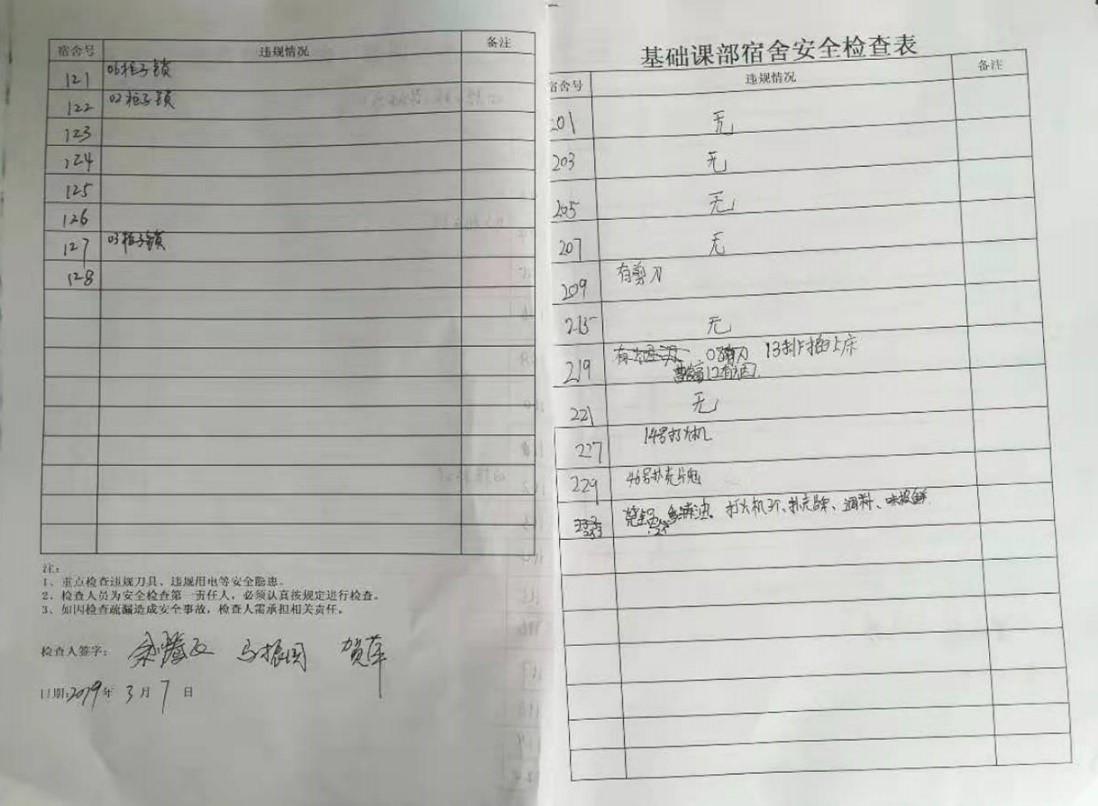 宿舍号 违规情况 备注
121 06柜子锁
122 02柜子锁
123
124
125
126
127 03柜子锁
128
注:
1、重点检查违规刀具、违规用电等安全隐患。
2、检查人员为安全检查第一责任人,必须认真按规定进行检查。
3、如因检查疏漏造成安全事故,检查人需承担相关责任。
检查人签字: 马振国 贺萍
日期:2019年3月7日
基础课部宿舍安全检查表
宿舍号 违规情况 备注
201 无
203 无
205 无
207 无
209 有剪刀
215 无
219 13 上床
221 无
227 14号打火机
229 46号扑克
打火机3个、扑克牌、调料、味极鲜